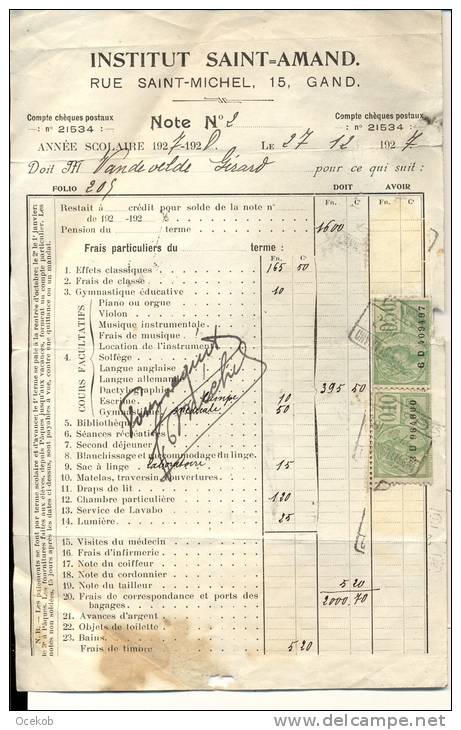 INSTITUT SAINT=AMAND.
RUE SAINT-MICHEL, 15, GAND.
Compte chèques postaux
—: n° 21534 :—
Note N° 2
Compte chèques postaux
—: n° 21534 :—
ANNÉE SCOLAIRE 1927-1928. LE 27 12 1927
Doit M Vandevelde Gérard pour ce qui suit :
FOLIO 205 DOIT AVOIR
Restait à crédit pour solde de la note n° Fr. Ct Fr. Ct
de 192 -192
Pension du terme 1600
Frais particuliers du terme : Fr. Ct
1. Effets classiques 165 50
2. Frais de classe
3. Gymnastique éducative 10
COURS FACULTATIFS
Piano ou orgue
Violon
Musique instrumentale
Frais de musique
Location de l'instrument
4. Solfège
Langue anglaise
Langue allemande
Dactylographie 395 50
Escrime 10
Gymnastique 50
5. Bibliothèque
6. Séances récréatives
7. Second déjeuner
8. Blanchissage et raccommodage du linge
9. Sac à linge laboratoire 15
10. Matelas, traversin, couvertures
11. Draps de lit
12. Chambre particulière 120
13. Service de Lavabo
14. Lumière 25
15. Visites du médecin
16. Frais d'infirmerie
17. Note du coiffeur
18. Note du cordonnier
19. Note du tailleur 5 20
20. Frais de correspondance et ports des
bagages 2000.70
21. Avances d'argent
22. Objets de toilette
23. Bains
Frais de timbre 5 20
Pour acquit
N. B. — Les paiements se font par terme scolaire et d'avance; le 1r terme se paie à la rentrée d'octobre; le 2e le 1r janvier;
6 D 409497
0.10
3 U 964660
Ocekob
www.delcampe.net